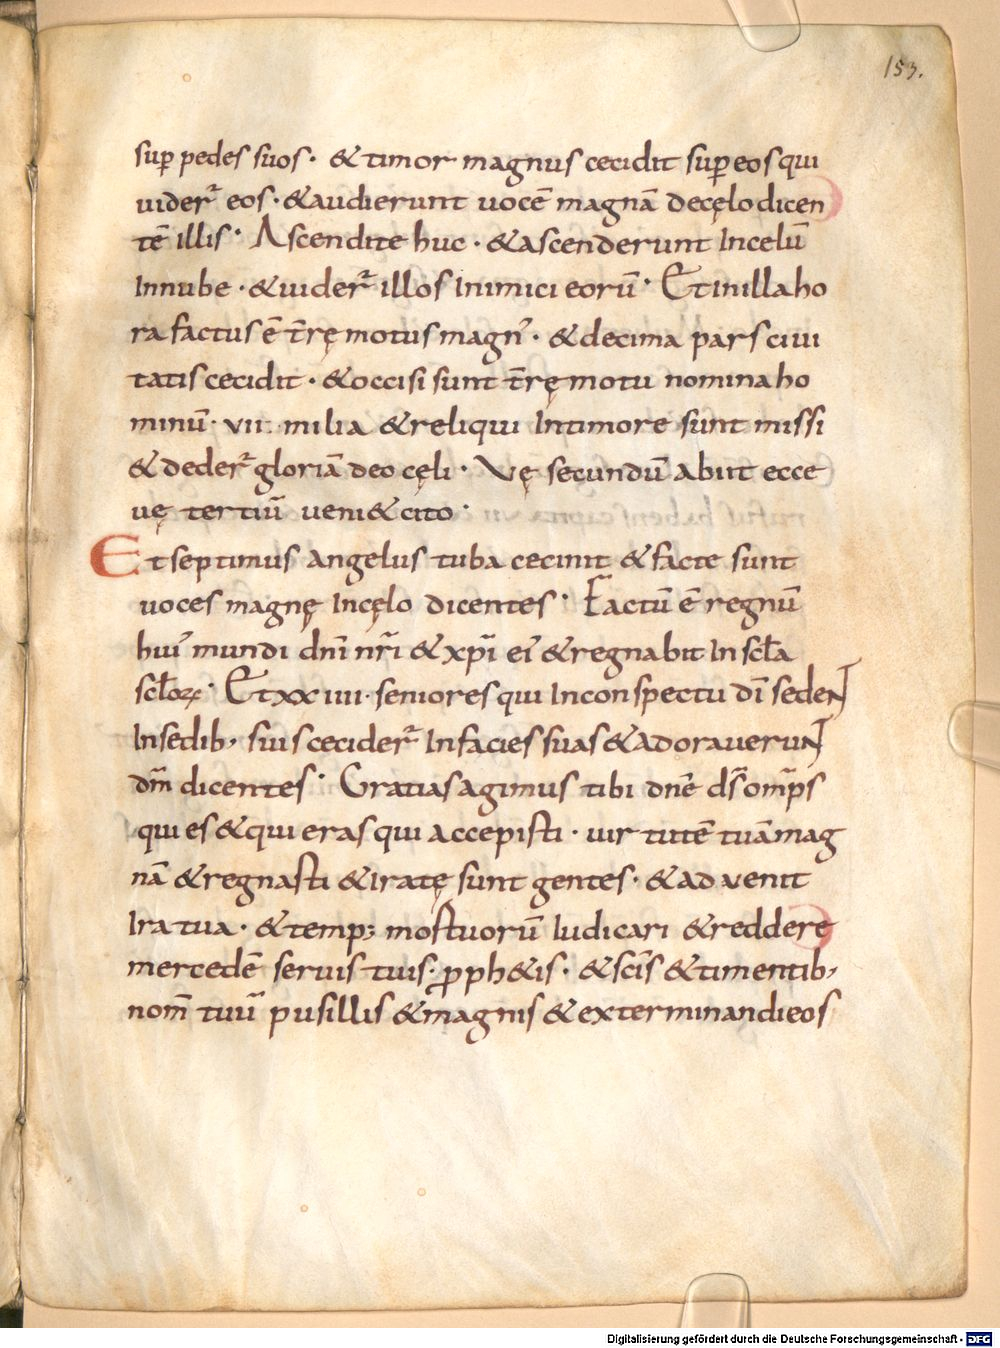 153.
sup̄ pedes suos · & timor magnus cecidit sup̄ eos qui
uider̄ eos · & audierunt uocē magnā de cęlo dicen
tē illis · Ascendite huc · & ascenderunt In celū
In nube · & uider̄ illos Inimici eorū · Et In illa ho
ra factus ē t̄rę motus magn᾽ · & decima pars ciui
tatis cecidit · & occisi sunt t̄rę motu nomina ho
minū · vii · milia & reliqui In timore sunt missi
& deder̄ gloriā deo cęli · Vę secundū abiit ecce
uę tertiū ueni& cito ·
Et septimus angelus tuba cecinit & facte sunt
uoces magnę In cęlo dicentes · Factū ē regnū
hui᾽ mundi dn̄i nr̄i & xp̄i ei᾽ & regnabit In scl̄a
scl̄oꝝ · Et xx iiii · seniores qui In conspectu dī sedeNT
In sedib; suis cecider̄ In facies suas & adoraueruNT
dm̄ dicentes · Gratias agimus tibi dn̄e ds̄ om̄ps
qui es & qui eras qui accepisti · uirtutē tuā mag
nā & regnasti & Iratę sunt gentes · & aduenit
Ira tua · & temp; mostuorū Iudicari & reddere
mercedē seruis tuis · ꝓph&is · & sc̄is & timentib;
nom̄ tuū pusillis & magnis & exterminandi eos
Digitalisierung gefördert durch die Deutsche Forschungsgemeinschaft - DFG